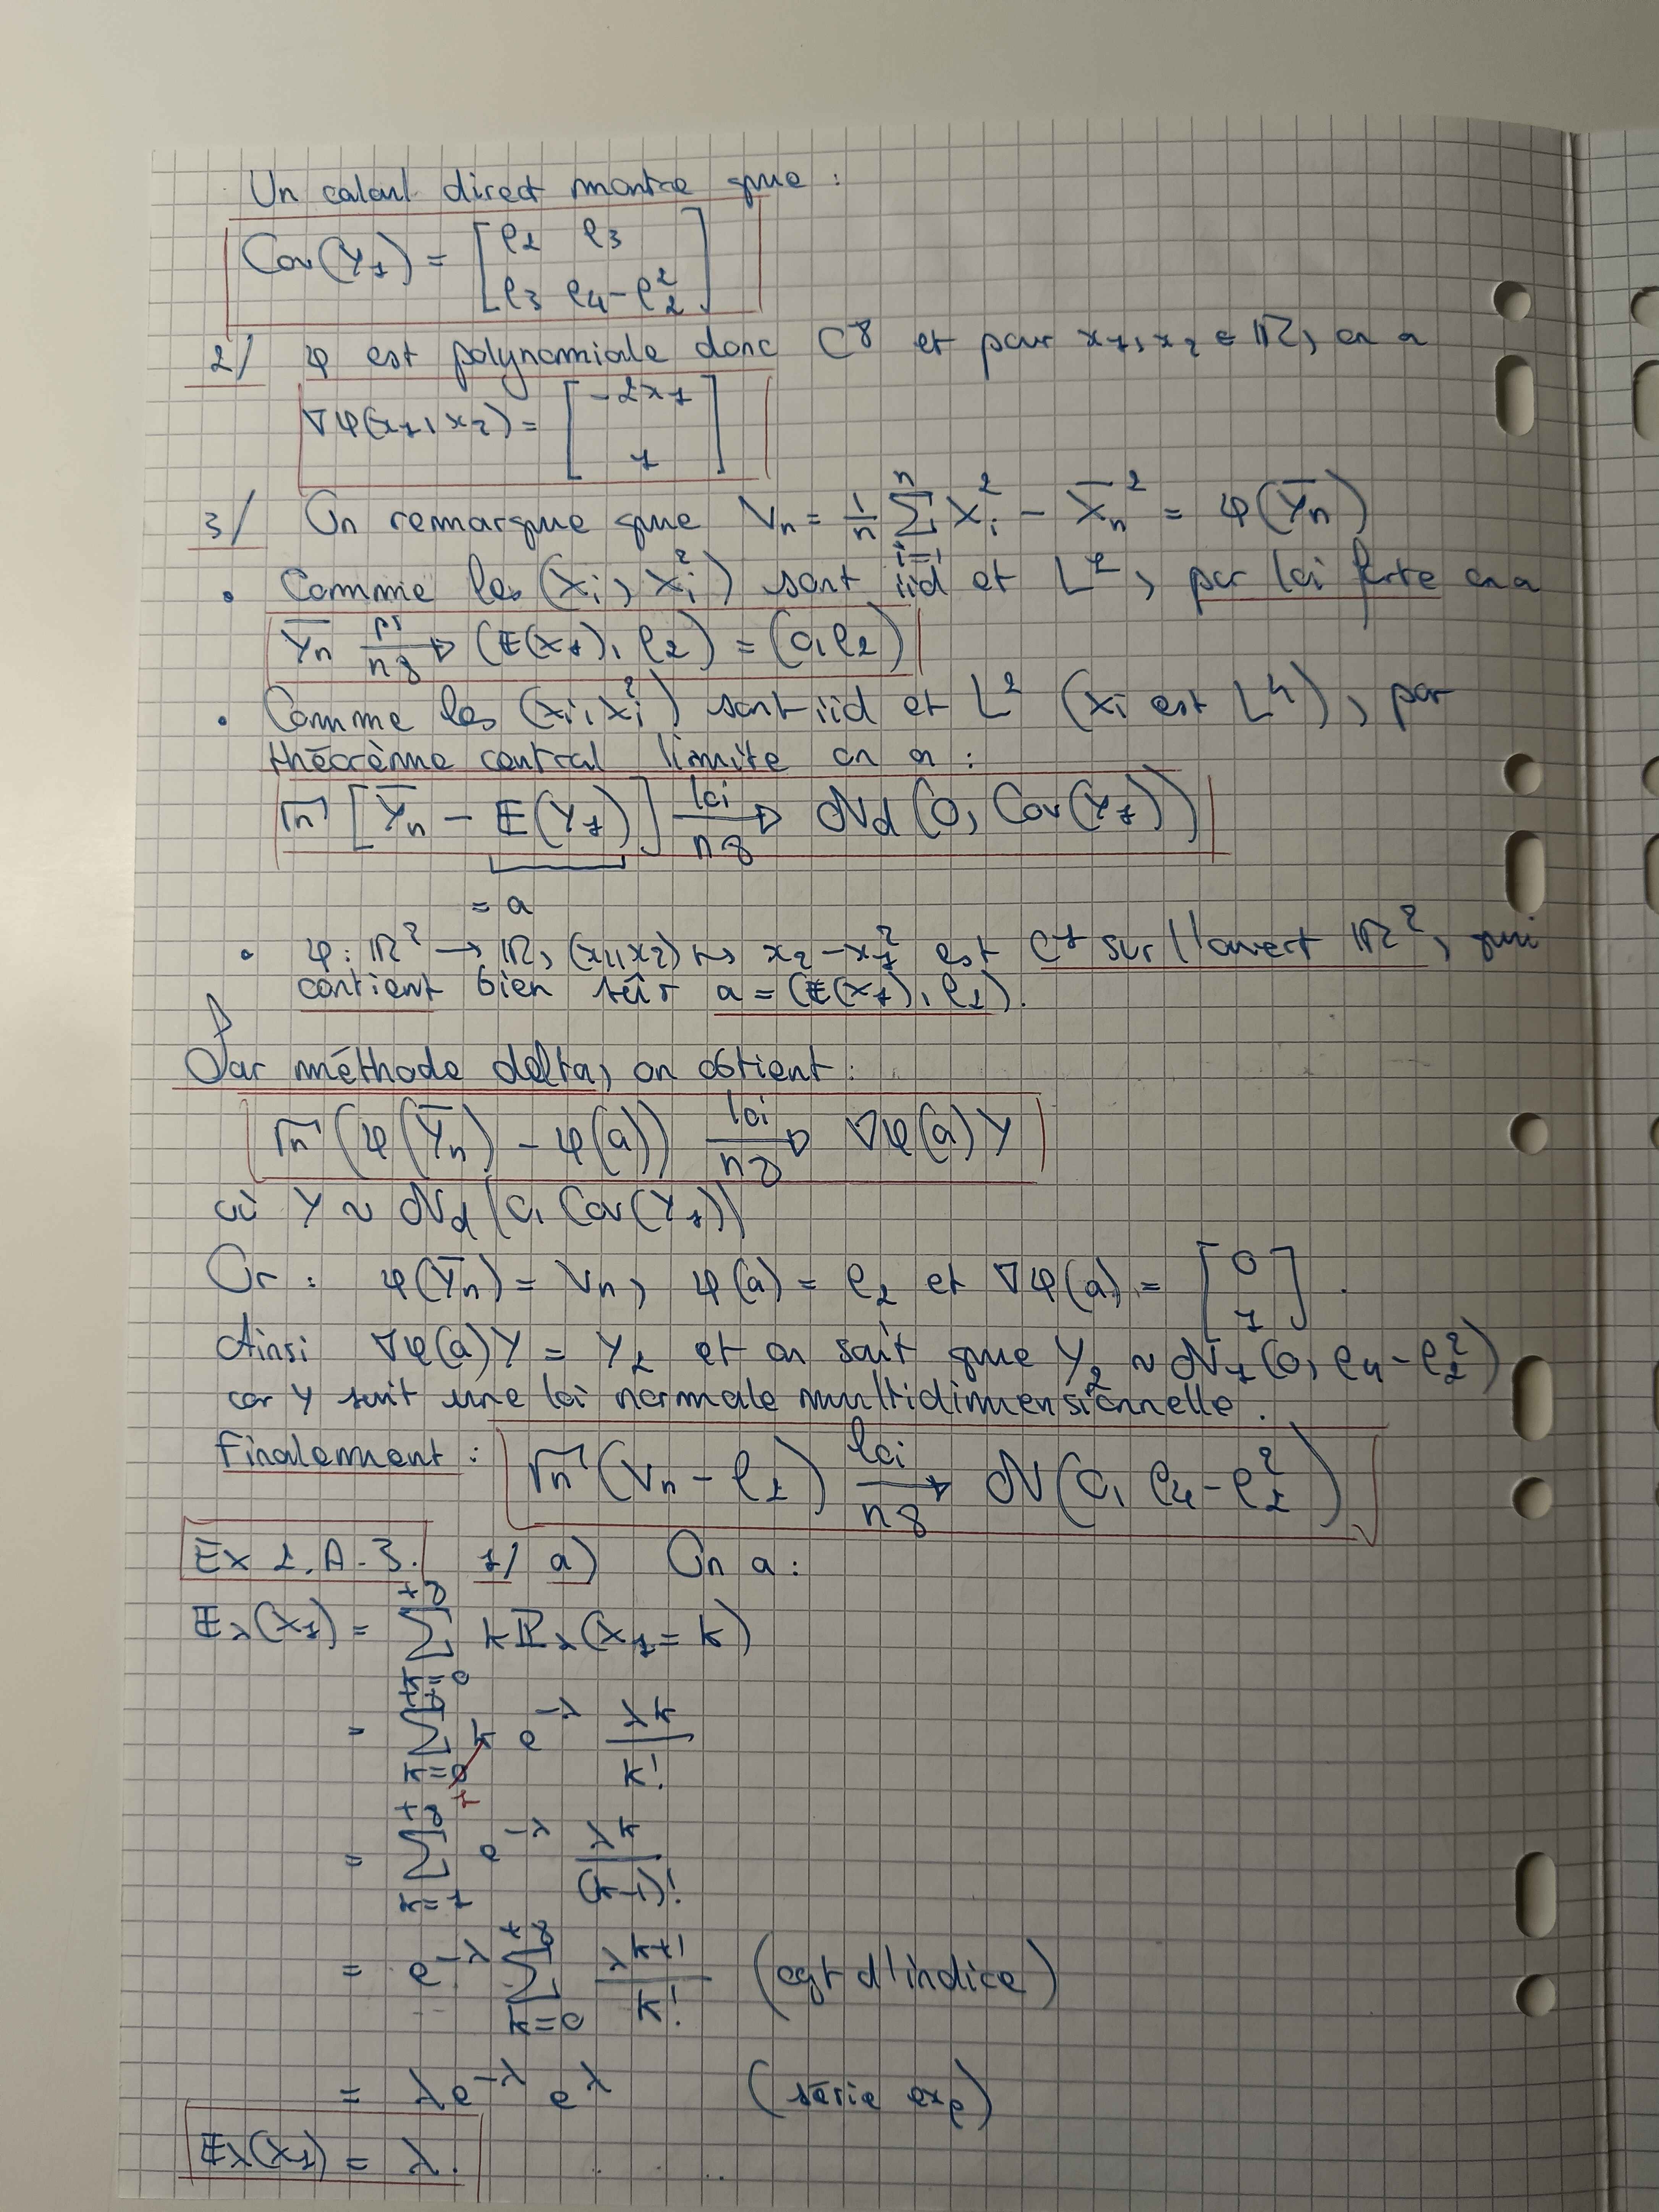 Un calcul direct montre que :
Cov(Y₁) = [ρ₂ ρ₃
ρ₃ ρ₄-ρ₂²]
2/ φ est polynomiale donc C∞ et pour x₁, x₂ ∈ ℝ, on a
∇φ(x₁, x₂) = [-2x₁
1]
3/ On remarque que Vₙ = 1/n Σᵢ₌₁ⁿ Xᵢ² - X̄ₙ² = φ(Ȳₙ)
• Comme les (Xᵢ, Xᵢ²) sont iid et L¹, par loi forte on a
Ȳₙ ps→ n∞ (𝔼(X₁), ρ₂) = (0, ρ₂)
• Comme les (Xᵢ, Xᵢ²) sont iid et L² (Xᵢ est L⁴), par
théorème central limite on a :
√n [Ȳₙ - 𝔼(Y₁)] loi→ n∞ 𝒩d(0, Cov(Y₁))
= a
• φ : ℝ² → ℝ, (x₁, x₂) ↦ x₂ - x₁² est C¹ sur l'ouvert ℝ², qui
contient bien sûr a = (𝔼(X₁), ρ₂).
Par méthode delta, on obtient :
√n (φ(Ȳₙ) - φ(a)) loi→ n∞ ∇φ(a)Y
où Y ~ 𝒩d(0, Cov(Y₁))
Or : φ(Ȳₙ) = Vₙ, φ(a) = ρ₂ et ∇φ(a) = [0
1].
Ainsi ∇φ(a)Y = Y₂ et on sait que Y₂ ~ 𝒩₁(0, ρ₄-ρ₂²)
car Y suit une loi normale multidimensionnelle.
Finalement : √n (Vₙ - ρ₂) loi→ n∞ 𝒩(0, ρ₄-ρ₂²)
Ex 2.A-3. 1/ a) On a :
𝔼λ(X₁) = Σₖ₌₀^+∞ k ℙλ(X₁ = k)
= Σₖ₌₀^+∞ k e^-λ λ^k / k!
1
= Σₖ₌₁^+∞ e^-λ λ^k / (k-1)!
= e^-λ Σₖ₌₀^+∞ λ^(k+1) / k! (cgt d'indice)
= λe^-λ e^λ (série exp)
𝔼λ(X₁) = λ.